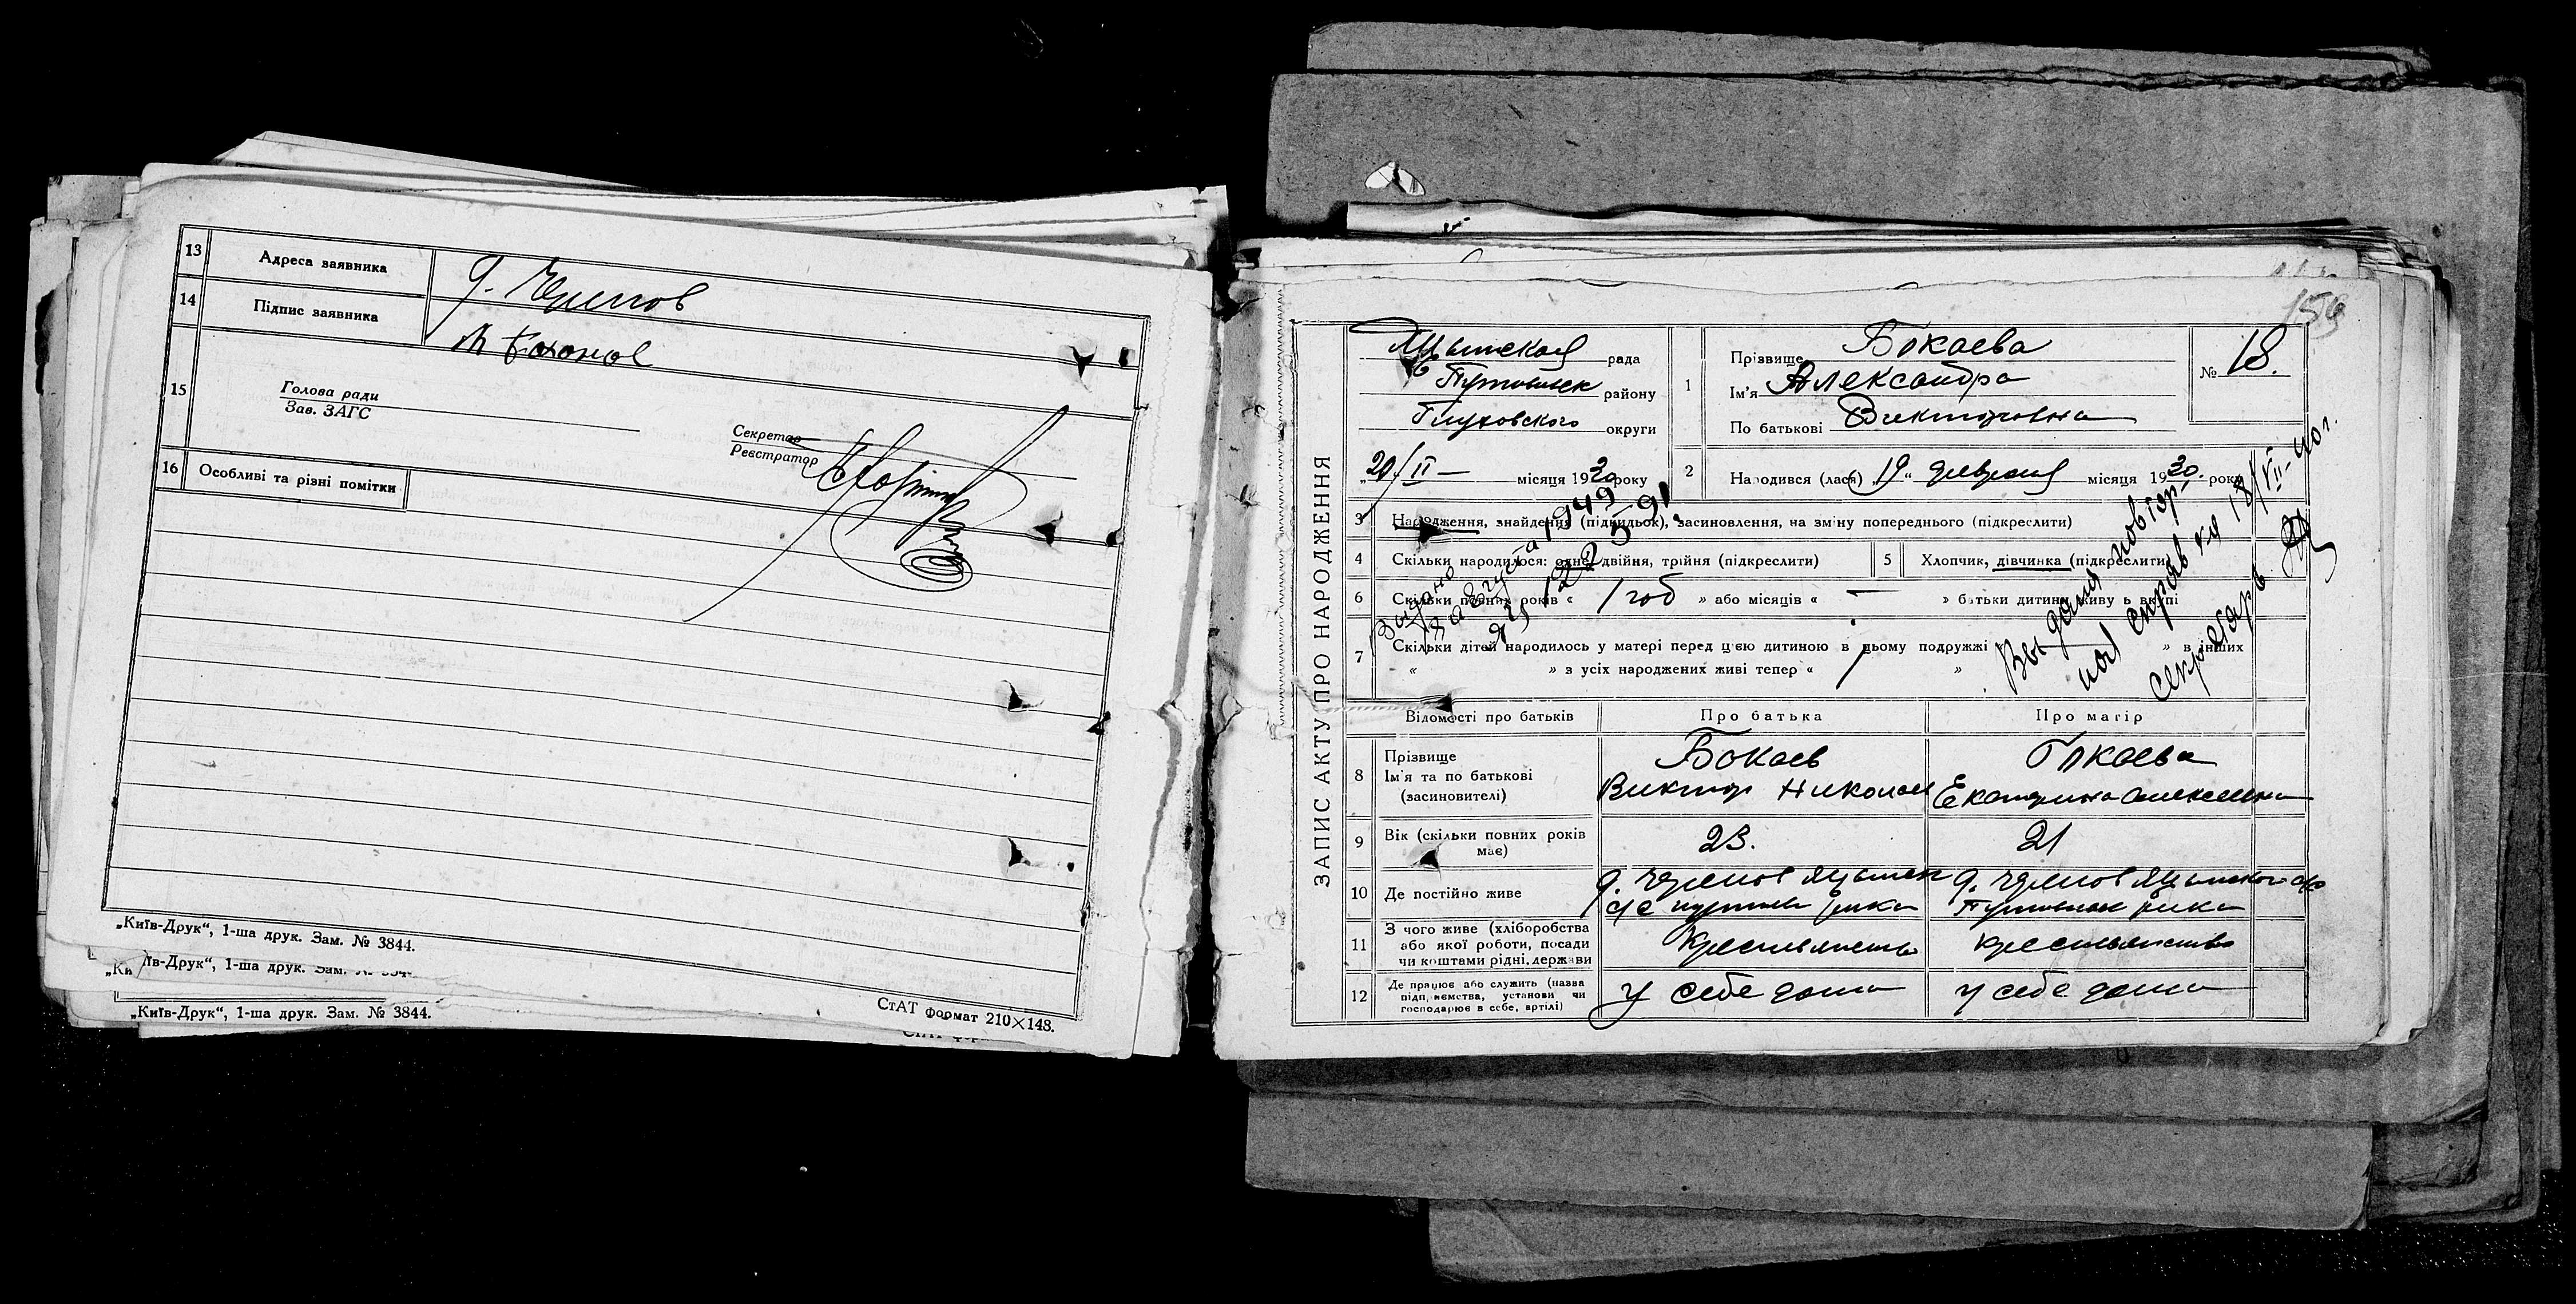 13 Адреса заявника д. Черепов
14 Підпис заявника
15 Голова ради
Зав. ЗАГС
Секретар
Реєстратор
16 Особливі та різні помітки
„Київ-Друк“, 1-ша друк. Зам. № 3844.
СтАТ формат 210×148.
„Київ-Друк“, 1-ша друк. Зам. № 3844.
159
ЗАПИС АКТУ ПРО НАРОДЖЕННЯ
рада
району
Глуховского округи
„20/II — місяця 1930 року
1 Прізвище Бокаева
Ім'я Александра
По батькові Викторовна
№ 18.
2 Народився (лася) „19“ февраля місяця 1930 року
3 Народження, знайдення (підкидьок), засиновлення, на зміну попереднього (підкреслити)
4 Скільки народилося: одне, двійня, трійня (підкреслити)
5 Хлопчик, дівчинка (підкреслити)
6 Скільки повних років « 1 год » або місяців « — » батьки дитини живуть вкупі
7 Скільки дітей народилось у матері перед цією дитиною в цьому подружжі » в інших
« » з усіх народжених живі тепер « »
Выдано
августа 1949
Выдана повтор
ная справка 18/VII-40 г.
секретарь
Відомості про батьків Про батька Про матір
8 Прізвище
Ім'я та по батькові
(засиновителі)
Бокаев
Виктор Николаев
Бокаева
Екатерина Алексеевна
9 Вік (скільки повних років має) 23. 21
10 Де постійно живе
д. Черепов
д. Черепов
11 З чого живе (хліборобства
або якої роботи, посади
чи коштами рідні, держави
крестьянство
крестьянство
12 Де працює або служить (назва
підприємства, установи чи
господарює в себе, артілі)
у себе дома
у себе дома